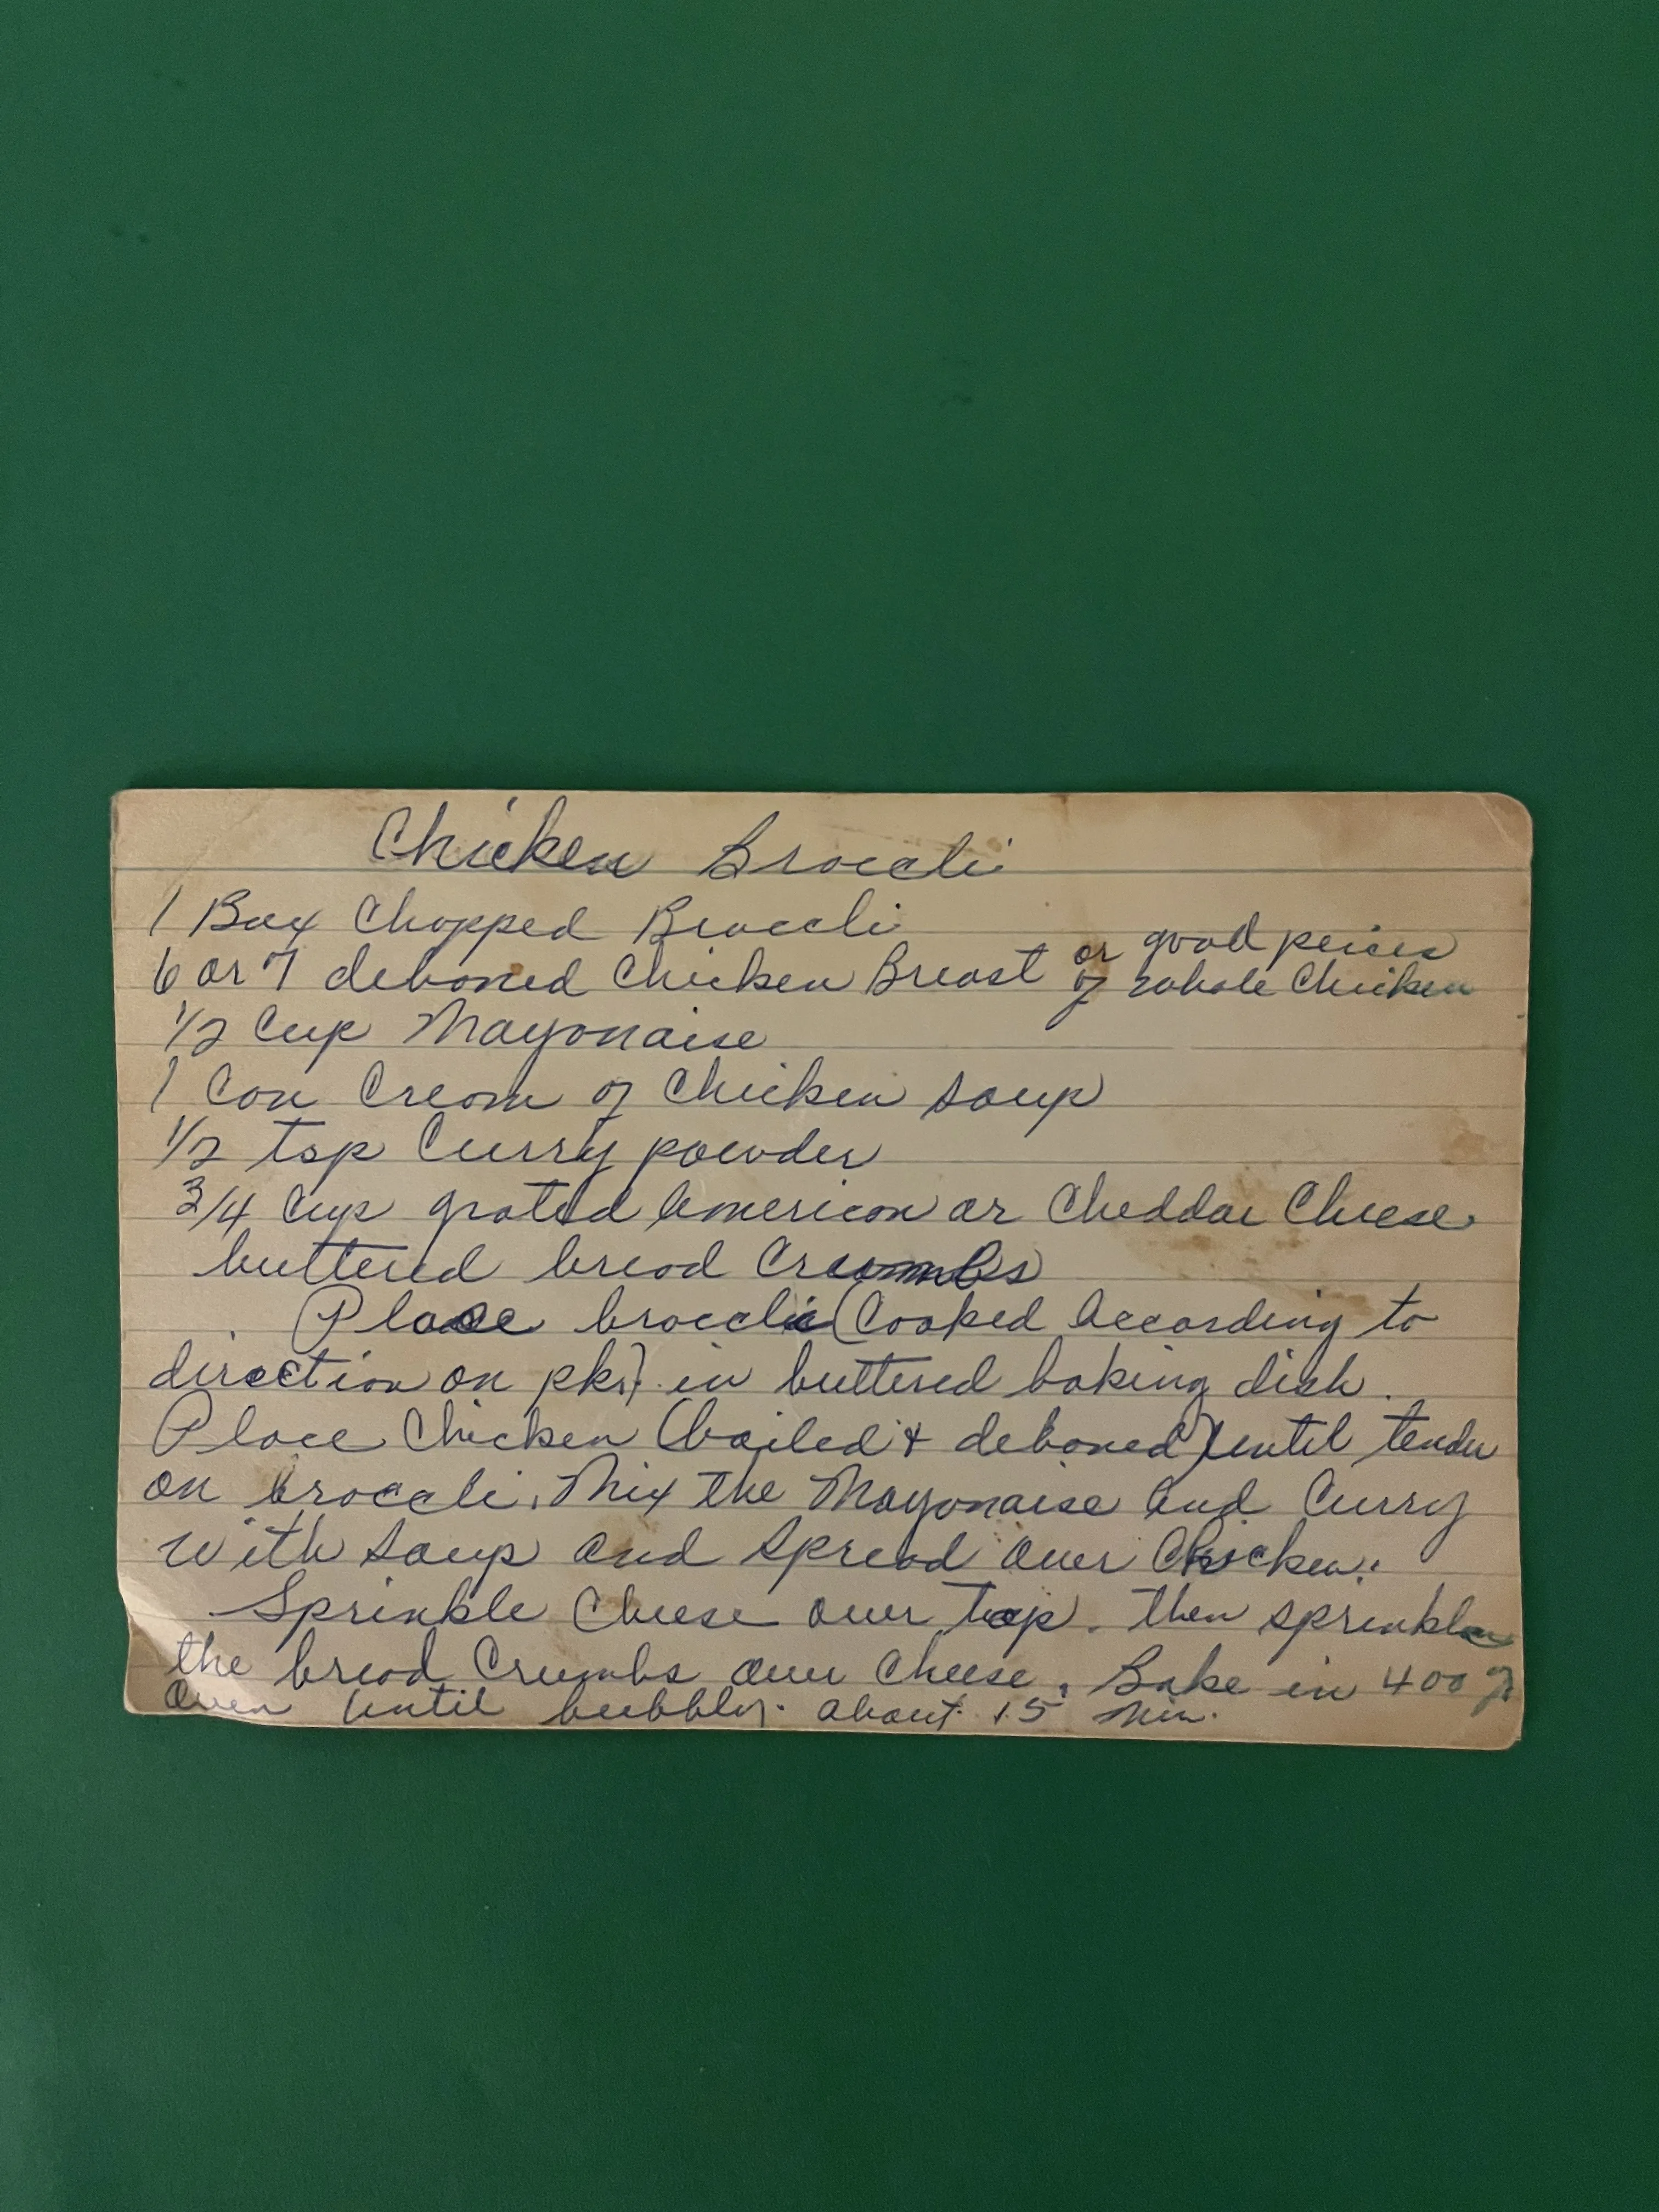 Chicken Broccli
1 Box Chopped Broccli
6 or 7 deboned Chicken Breast or good peices
of whole Chicken
1/2 Cup Mayonaise
1 Can Cream of Chicken Soup
1/2 tsp Curry powder
3/4 Cup grated American or Cheddar Cheese
buttered bread Crumbs
Place broccli (Cooked According to
direction on pkg). in buttered baking dish.
Place Chicken (boiled & deboned) until tender
on broccli. Mix the Mayonaise and Curry
with Soup and Spread over Chicken.
Sprinkle Cheese over top. then sprinkle
the bread Crumbs over Cheese. Bake in 400
oven until bubbly. about 15 min.